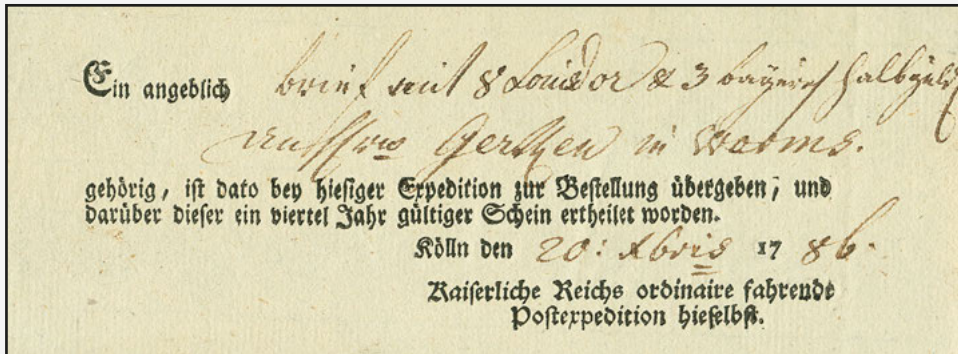 Ein angeblich brief mit 8 Louisdor & 3 bayerₛ halbguld
Gertzen in Worms.
gehörig, ist dato bey hiesiger Expedition zur Bestellung übergeben, und
darüber dieser ein viertel Jahr gültiger Schein ertheilet worden.
Kölln den 20: Xbris 17 86.
Kaiserliche Reichs ordinaire fahrende
Postexpedition hieselbst.